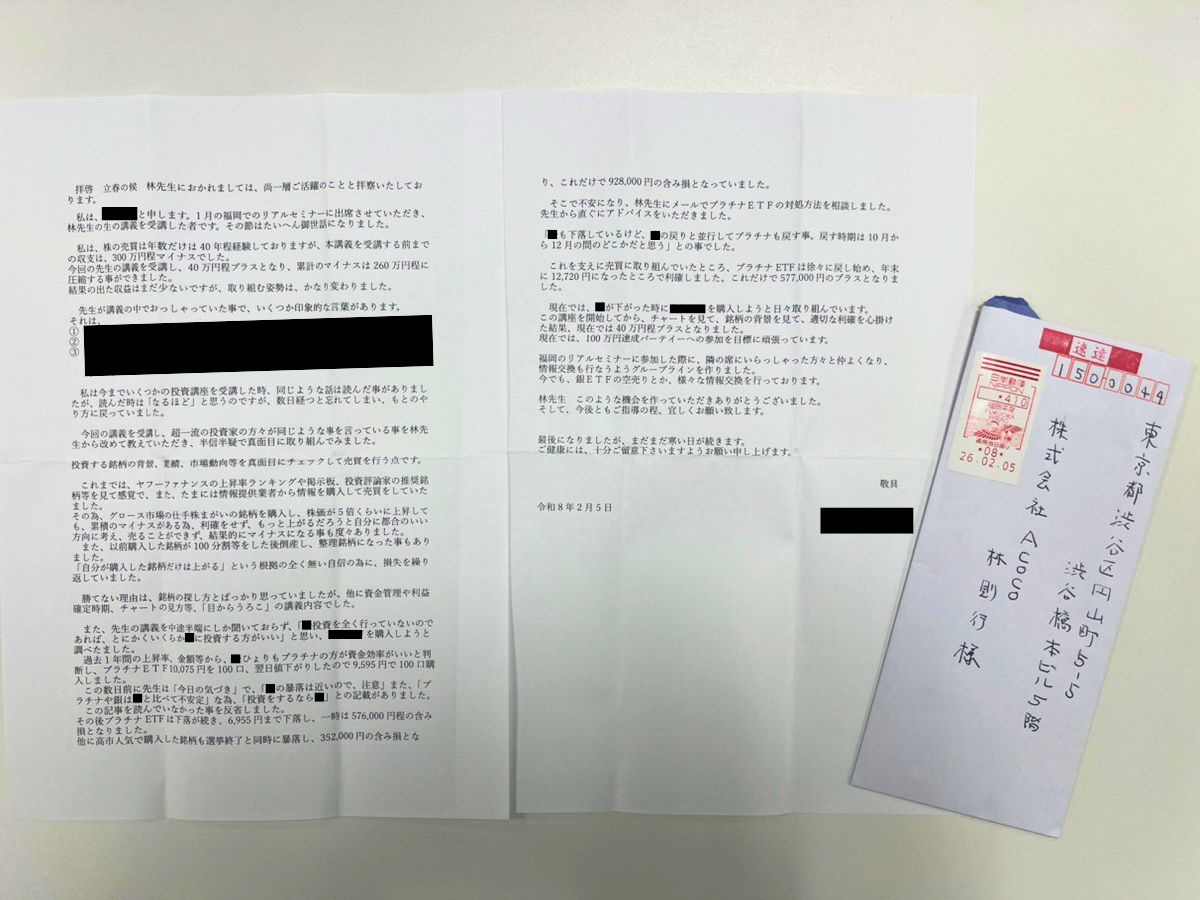 拝啓　立春の候　林先生におかれましては、尚一層ご活躍のことと拝察いたしてお
ります。
私は、
と申します。1月の福岡でのリアルセミナーに出席させていただき、
林先生の生の講義を受講した者です。その節はたいへん御世話になりました。
私は、株の売買は年数だけは40年程経験しておりますが、本講義を受講する前まで
の収支は、300万円程マイナスでした。
今回の先生の講義を受講し、40万円程プラスとなり、累計のマイナスは260万円程に
圧縮する事ができました。
結果の出た収益はまだ少ないですが、取り組む姿勢は、かなり変わりました。
先生が講義の中でおっしゃっていた事で、いくつか印象的な言葉があります。
それは、
①
②
③
私は今までいくつかの投資講座を受講した時、同じような話は読んだ事がありまし
たが、読んだ時は「なるほど」と思うのですが、数日経つと忘れてしまい、もとのや
り方に戻っていました。
今回の講義を受講し、超一流の投資家の方々が同じような事を言っている事を林先
生から改めて教えていただき、半信半疑で真面目に取り組んでみました。
投資する銘柄の背景、業績、市場動向等を真面目にチェックして売買を行う点です。
これまでは、ヤフーファイナンスの上昇率ランキングや掲示板、投資評論家の推奨銘
柄等を見て感覚で、また、たまには情報提供業者から情報を購入して売買をしていた
ました。
その為、グロース市場の仕手株まがいの銘柄を購入し、株価が5倍くらいに上昇して
も、累積のマイナスがある為、利確をせず、もっと上がるだろうと自分に都合のいい
方向に考え、売ることができず、結果的にマイナスになる事も度々ありました。
また、以前購入した銘柄が100分割等をした後倒産し、整理銘柄になった事もあり
ました。
「自分が購入した銘柄だけは上がる」という根拠の全く無い自信の為に、損失を繰り
返していました。
勝てない理由は、銘柄の探し方とばっかり思っていましたが、他に資金管理や利益
確定時期、チャートの見方等、「目からうろこ」の講義内容でした。
また、先生の講義を中途半端にしか聞いておらず、「
投資を全く行っていないので
あれば、とにかくいくらか
に投資する方がいい」と思い、
を購入しようと
調べたました。
過去1年間の上昇率、金額等から、
ひょりもプラチナの方が資金効率がいいと判
断し、プラチナETF10,075円を100口、翌日値下がりしたので9,595円で100口購
入しました。
この数日前に先生は「今日の気づき」で、「
の暴落は近いので、注意」また、「プ
ラチナや銀は
と比べて不安定」な為、「投資をするなら
」との記載がありました。
この記事を読んでいなかった事を反省しました。
その後プラチナETFは下落が続き、6,955円まで下落し、一時は576,000円程の含み
損となりました。
他に高市人気で購入した銘柄も選挙終了と同時に暴落し、352,000円の含み損とな
り、これだけで928,000円の含み損となっていました。
そこで不安になり、林先生にメールでプラチナETFの対処方法を相談しました。
先生から直ぐにアドバイスをいただきました。
「
も下落しているけど、
の戻りと並行してプラチナも戻す事。戻す時期は10月か
ら12月の間のどこかだと思う」との事でした。
これを支えに売買に取り組んでいたところ、プラチナETFは徐々に戻し始め、年末
に12,720円になったところで利確しました。これだけで577,000円のプラスとなりま
した。
現在では、
が下がった時に
を購入しようと日々取り組んでいます。
この講座を開始してから、チャートを見て、銘柄の背景を見て、適切な利確を心掛け
た結果、現在では40万円程プラスとなりました。
現在では、100万円達成パーティーへの参加を目標に頑張っています。
福岡のリアルセミナーに参加した際に、隣の席にいらっしゃった方々と仲よくなり、
情報交換も行なうようグループラインを作りました。
今でも、銀ETFの空売りとか、様々な情報交換を行っております。
林先生　このような機会を作っていただきありがとうございました。
そして、今後ともご指導の程、宜しくお願い致します。
最後になりましたが、まだまだ寒い日が続きます。
ご健康には、十分ご留意下さいますようお願い申し上げます。
敬具
令和8年2月5日
速達
1500044
日本郵便
NIPPON
*410
福岡平尾
FUKUOKA
HIRAO
*08*
26.02.05
東京都渋谷区円山町5-5
渋谷橋本ビル5階
株式会社 ACoCo
林則行様